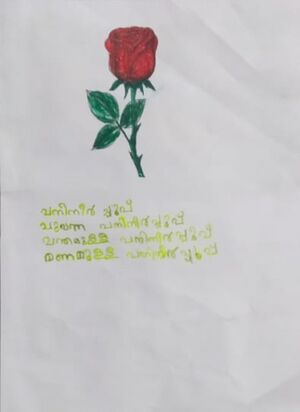 പനിനീർ പ്പൂവ്
ചുവന്ന പനിനീർപ്പൂവ്
ചന്തമുള്ള പനിനീർപ്പൂവ്
മണമുള്ള പനിനീർപ്പൂവ്